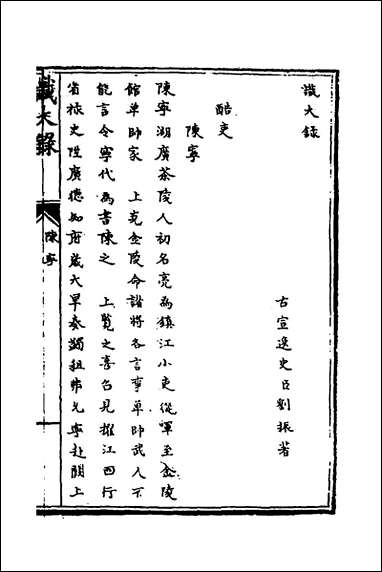 識大錄
古宣逸史臣劉振著
酷吏
陳寧
陳寧湖廣茶陵人初名亮為鎮江小吏從軍至金陵
館軍帥家 上克金陵命諸將各言事軍帥武人不
能言令寧代為書陳之 上覽之喜召見擢江西行
省掾史陞廣德知府歲大旱奏蠲租弗允寧赴闕上
識大錄
陳寧